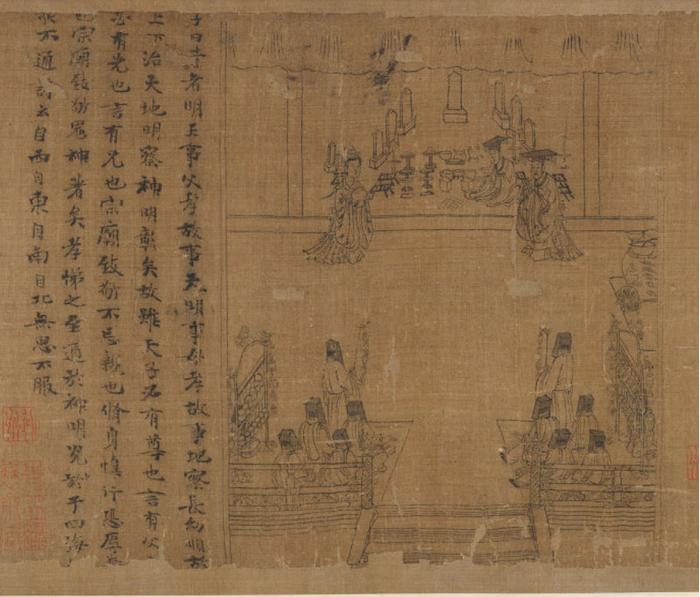 子曰昔者明王事父孝故事天明事母孝故事地察長幼順故
上下治天地明察神明彰矣故雖天子必有尊也言有父
必有先也言有兄也宗廟致敬不忘親也脩身慎行恐辱
也宗廟致敬鬼神著矣孝悌之至通於神明光於于四海
所不通詩云自西自東自南自北無思不服